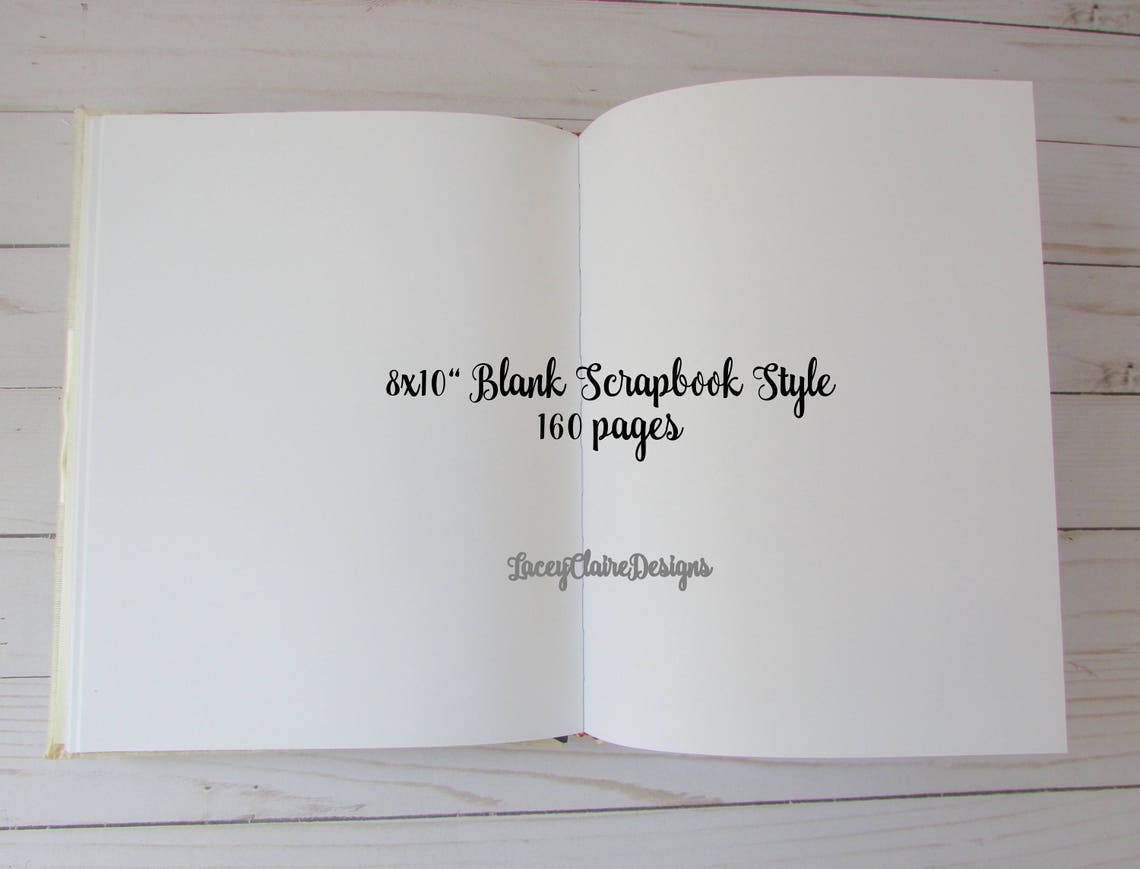 8x10“ Blank Scrapbook Style
160 pages
LaceyClaireDesigns